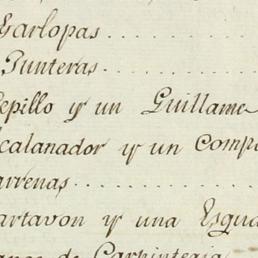 Garlopas..........
Punteras..........
epillo y un Guillame
calanador y un Comp
arrenas..........
artavon y una Esqua
de Carpinteria